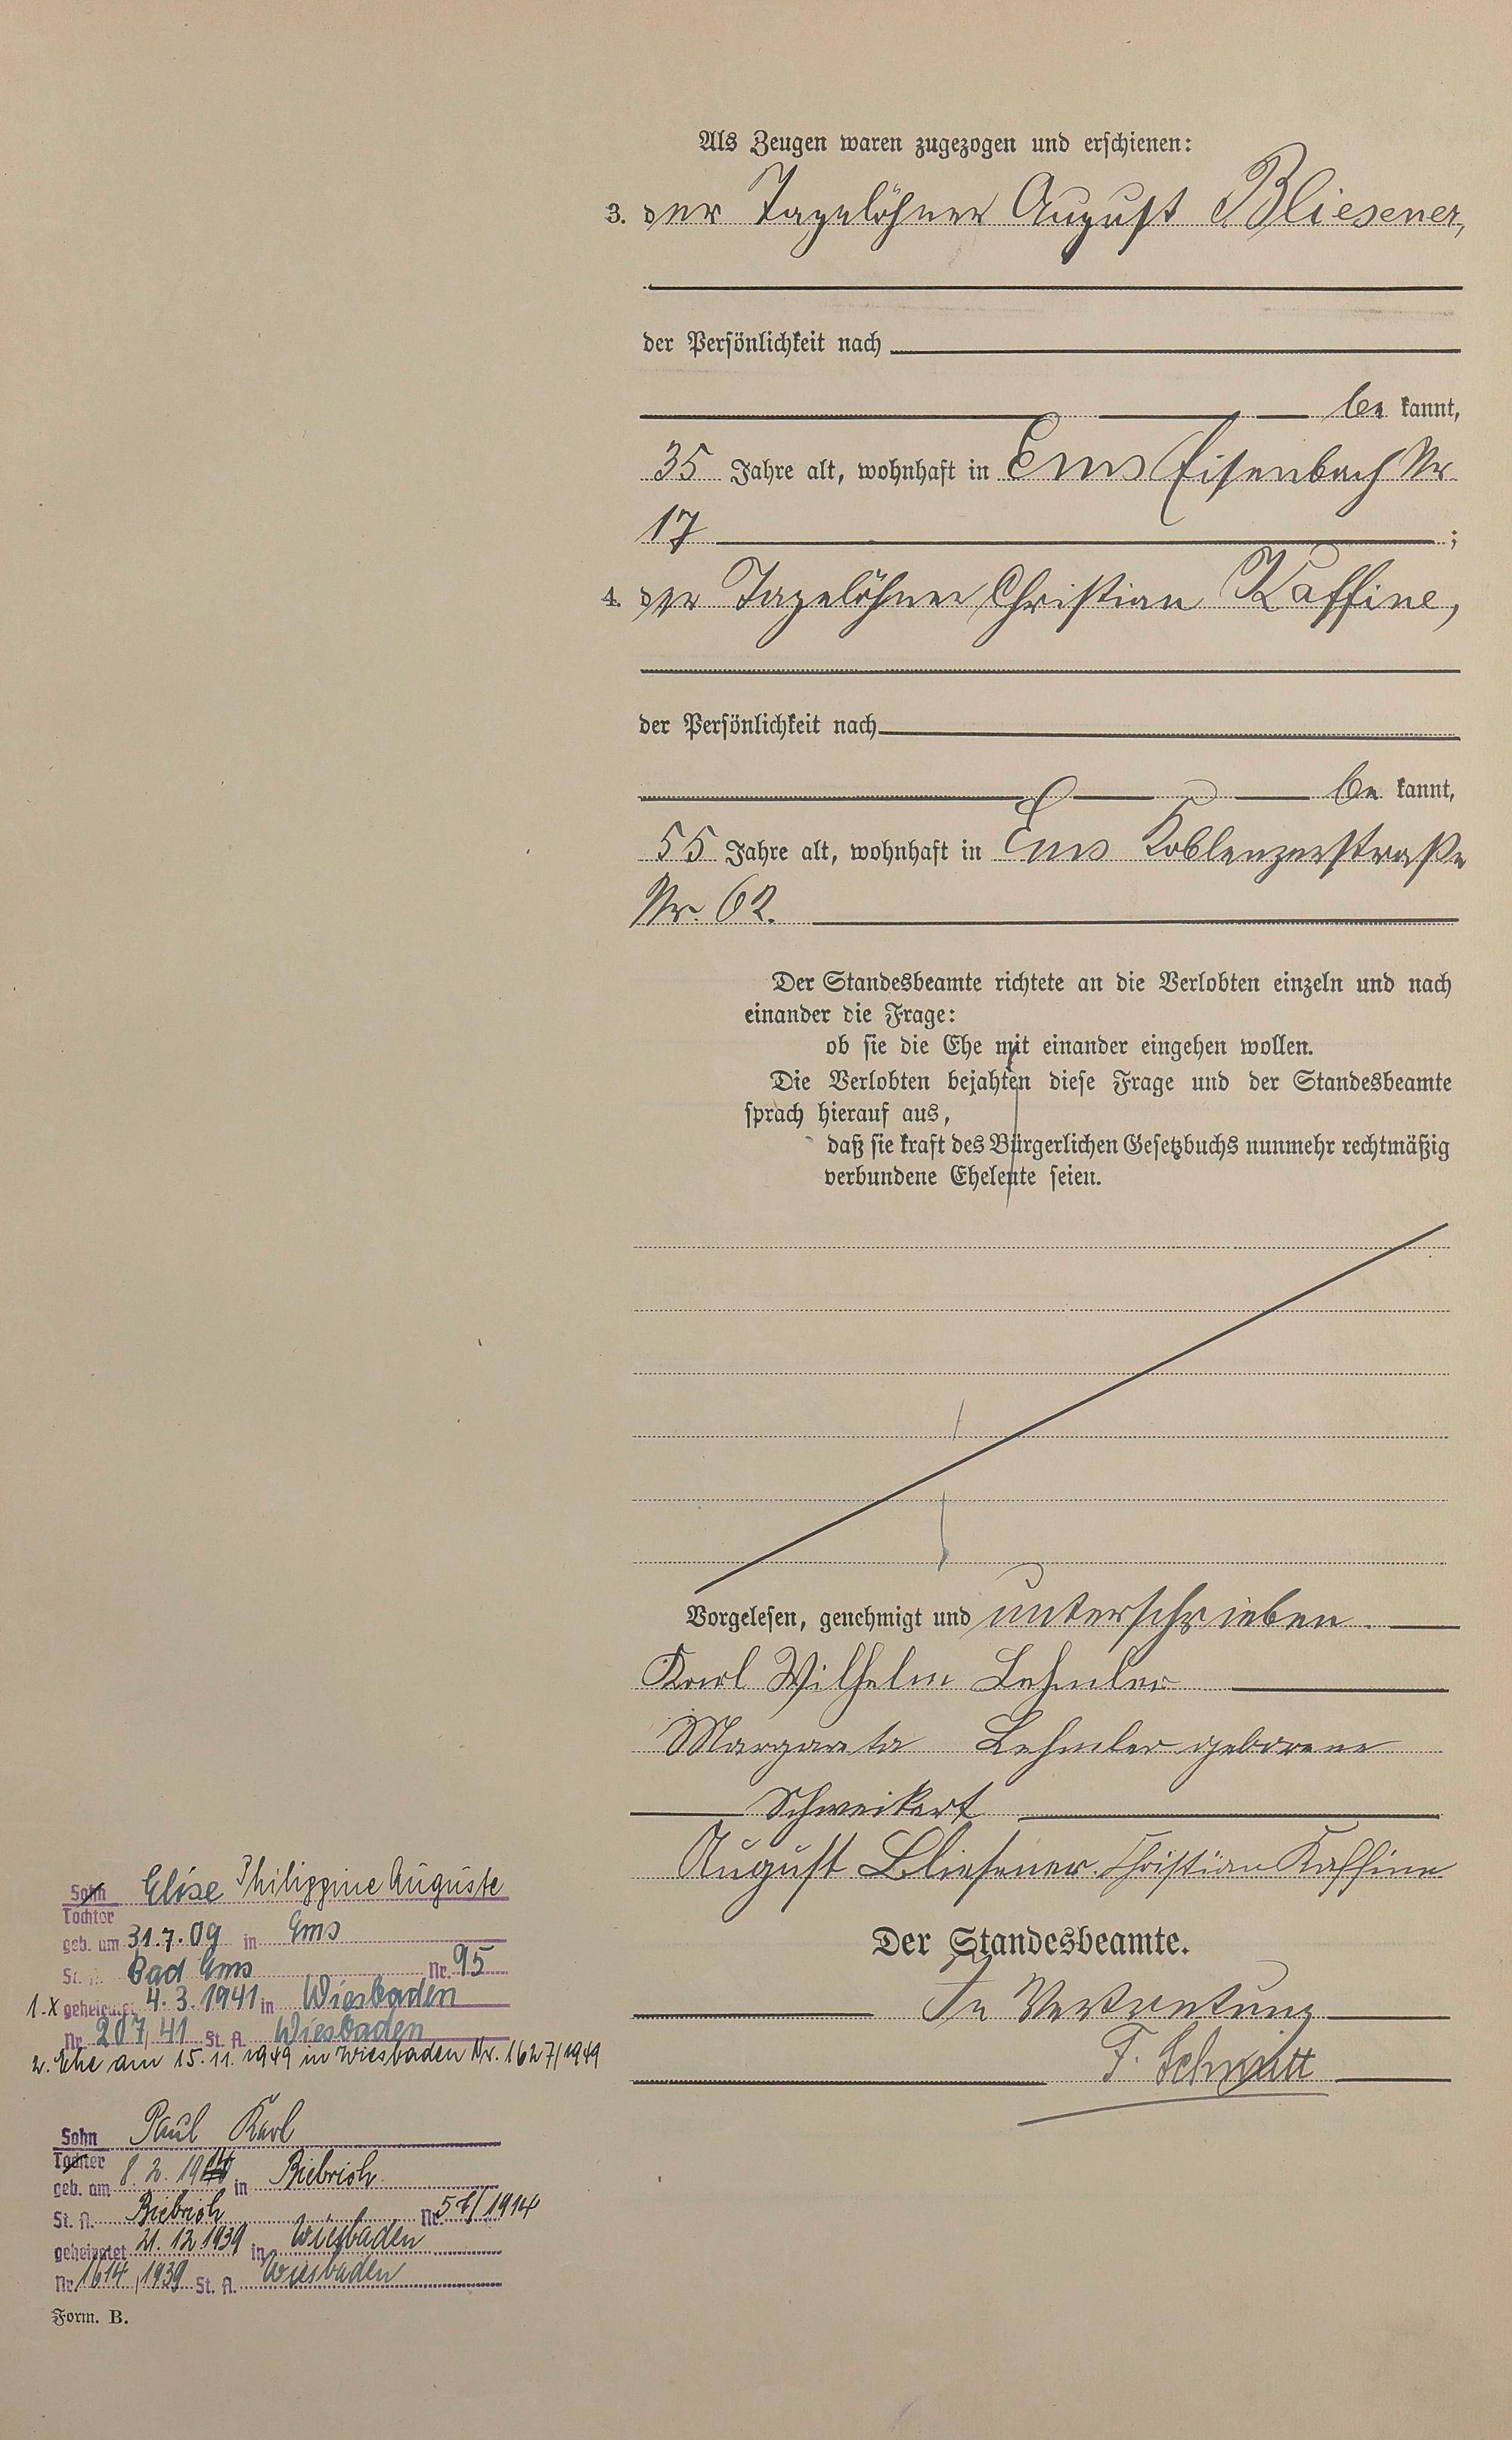 Als Zeugen waren zugezogen und erschienen:
3. der Tagelöhner August Bliesener,
der Persönlichkeit nach
be kannt,
35 Jahre alt, wohnhaft in Ems Eisenbach Nr.
17 ;
4. der Tagelöhner Christian Kaffine,
der Persönlichkeit nach
be kannt,
55 Jahre alt, wohnhaft in Ems Koblenzerstraße
Nr. 62.
Der Standesbeamte richtete an die Verlobten einzeln und nach
einander die Frage:
ob sie die Ehe mit einander eingehen wollen.
Die Verlobten bejahten diese Frage und der Standesbeamte
sprach hierauf aus,
daß sie kraft des Bürgerlichen Gesetzbuchs nunmehr rechtmäßig
verbundene Eheleute seien.
Vorgelesen, genehmigt und unterschrieben.
Karl Wilhelm Lehmler
Margareta Lehmler geborene
Schweikert
August Bliesener. Christian Kaffine
Der Standesbeamte.
In Vertretung
F. Schmitt
Sohn Elise Philippine Auguste
Tochter
geb. am 31.7.09 in Ems
St. A. Bad Ems Nr. 95
1.X geheiratet 4.3.1941 in Wiesbaden
Nr. 207/41 St. A. Wiesbaden
2. Ehe am 15.11.1949 in Wiesbaden Nr. 1627/1949
Sohn Paul Karl
Tochter
geb. am 8.2.1914 in Biebrich
St. A. Biebrich Nr. /1914
geheiratet 21.12.1939 in Wiesbaden
Nr. 1614/1939 St. A. Wiesbaden
Form. B.